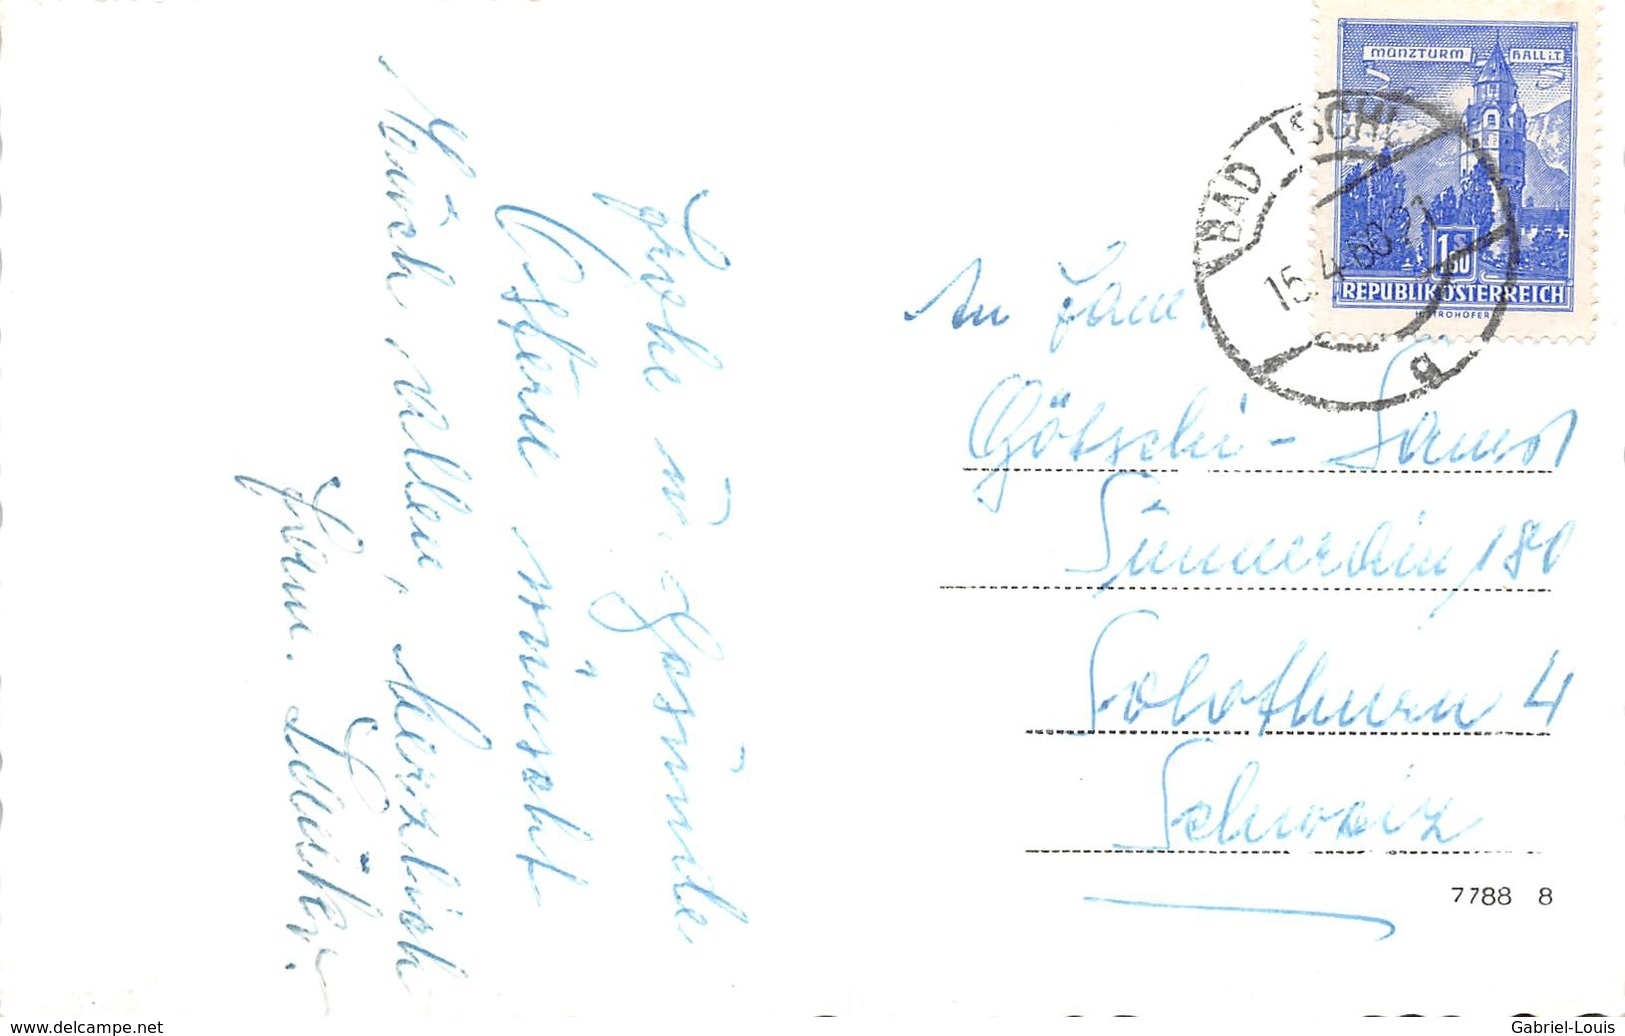 Frohe u. Gesunde
Ostern wünscht
Euch Allen, herzlich
Fam.
MÜNZTURM HALL i.T.
1 S 50
REPUBLIK ÖSTERREICH
BAD ISCHL
15.4.60 21
a
An Fam.
Götschi-
180
Solothurn 4
Schweiz
7788 8
www.delcampe.net
Gabriel-Louis